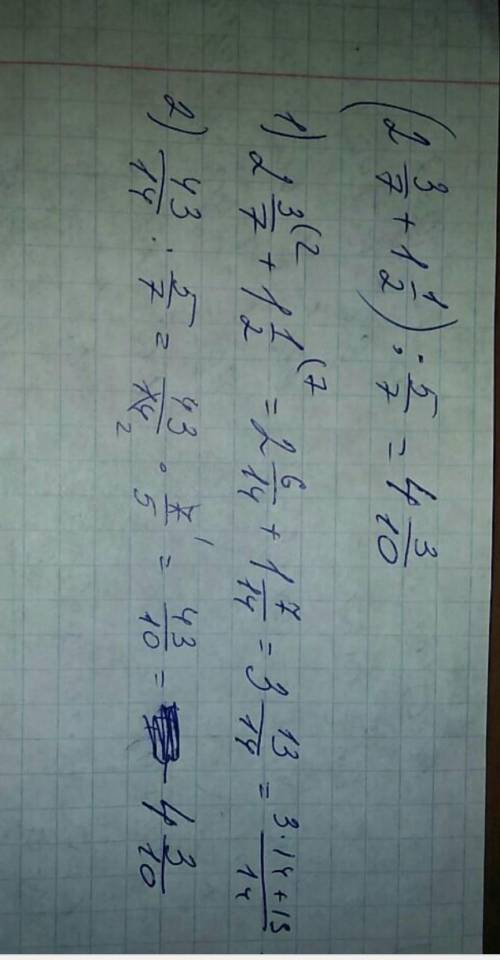 (2 3/7 + 1 1/2) : 5/7 = 4 3/10
1) 2 3/7 (2 + 1 1/2 (7 = 2 6/14 + 1 7/14 = 3 13/14 = 3·14+13/14
2) 43/14 : 5/7 = 43/14 2 · 7 1/5 = 43/10 = 4 3/10